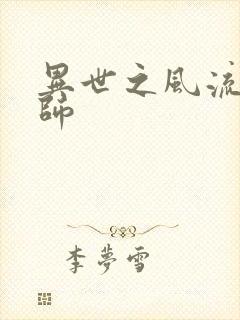 異世之風流
師
李夢雪